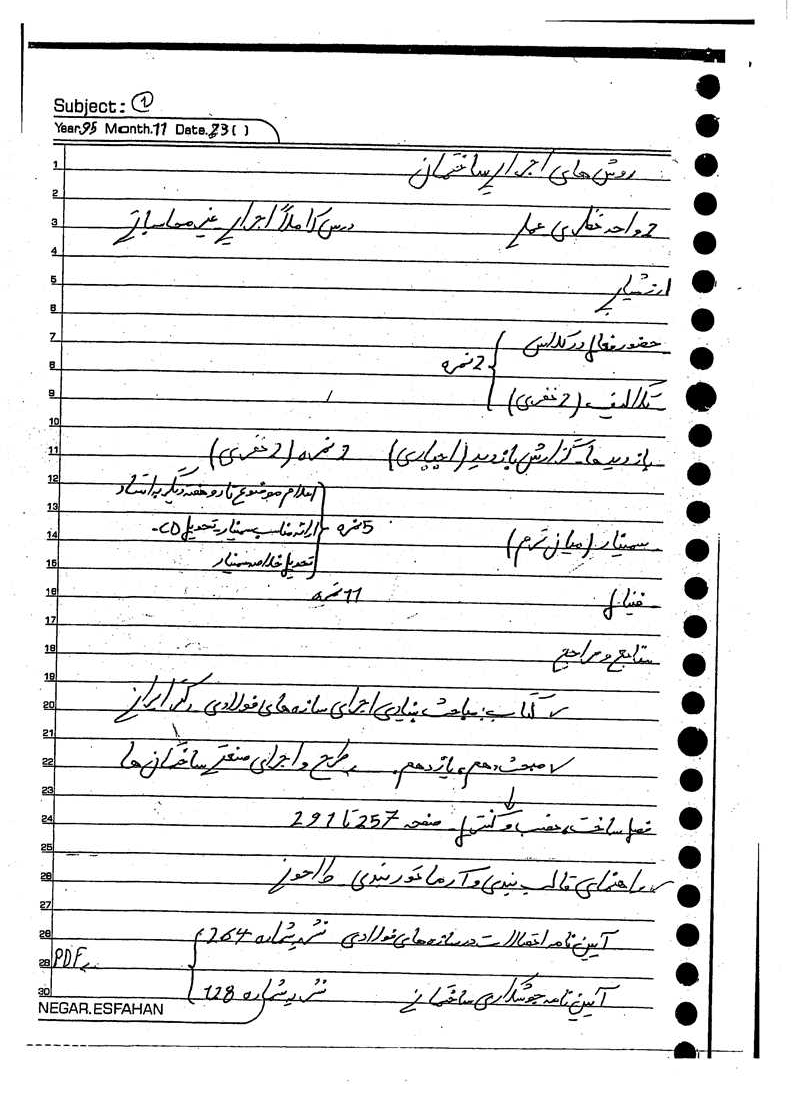 Subject: 1
Year.95 Month.11 Date.23 ( )
روش های اجرایی ساختمان
2 واحد نظری عملی درس کاملاً اجرایی غیر محاسباتی
ارزشیابی
حضور فعال در کلاس
2 نمره
تکالیف (2 نفری)
بازدیدها، گزارش بازدید (اجباری) 2 نمره (2 نفری)
اعلام موضوع تا دو هفته دیگر به استاد
سمینار (میان ترم) 5 نمره ارائه مناسب سمینار، تحویل CD
تحویل خلاصه سمینار
فینال 11 نمره
منابع و مراجع
✓ کتاب: مباحث بنیادی اجرای سازه های فولادی
✓ مبحث دهم، یازدهم، طرح و اجرای صنعتی ساختمان ها
فصل ساخت، نصب و کنترل صفحه 257 تا 291
✓ راهنمای قالب بندی و آرماتوربندی طاحونی
آیین نامه اتصالات در سازه های فولادی نشریه شماره 264
PDF
آیین نامه جوشکاری ساختمانی نشریه شماره 228
1
2
3
4
5
6
7
8
9
10
11
12
13
14
15
16
17
18
19
20
21
22
23
24
25
26
27
28
29
30
NEGAR.ESFAHAN